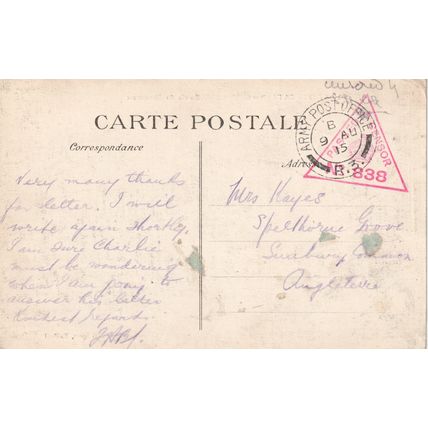 CARTE POSTALE
Correspondance
Adresse
ARMY POST OFFICE
B
9 AU
15
R.3.
PASSED CENSOR
838
Very many thanks
for letter. I will
write again shortly.
I am sure Charlie
must be wondering
when I am going to
answer his letter
Kindest regards.
Mrs Hayes
Spelthorne Grove
Sunbury Common
Angleterre